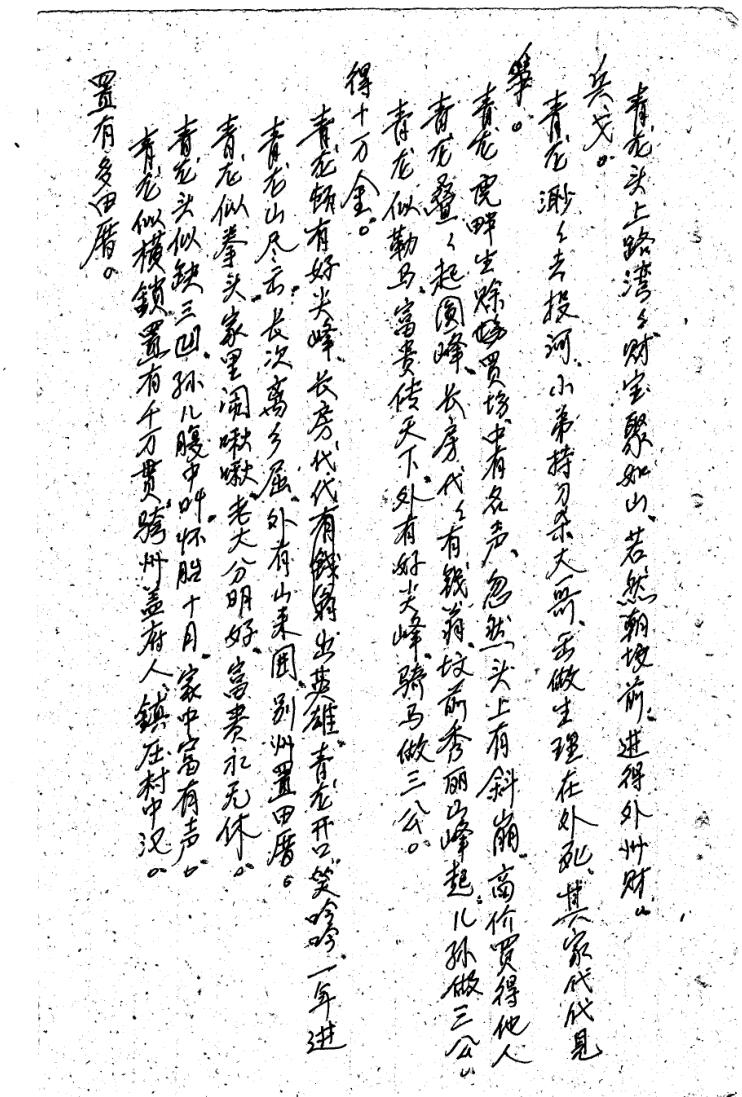 青龙头上路湾々、财宝聚如山、若然朝坟前、进得外州财。
兵戈。
青龙渺々去投河、小弟持刀杀大哥、出做生理在外死、其家代代见
事。
青龙虎畔生赊场、买坊中有名声、忽然头上有斜崩、高价买得他人
青龙叠々起圆峰、长房代々有钱翁、坟前秀丽山峰起、儿孙做三公。
青龙似勒马、富贵传天下、外有好尖峰、骑马做三公。
得十万金。
青龙頭有好尖峰、长房代代有钱翁出英雄、青龙开口笑吟吟、一年进
青龙山尽云、长次离乡屈、外有山来囲、别州置田厝。
青龙似拳头、家里闹啾啾、老大分明好、富贵永无休。
青龙头似缺三凹、孙儿腹中叫、怀胎十月、家中富有声。
青龙似横锁、置有千万贯、跨州盖府人、镇庄村中汉。
置有多田厝。